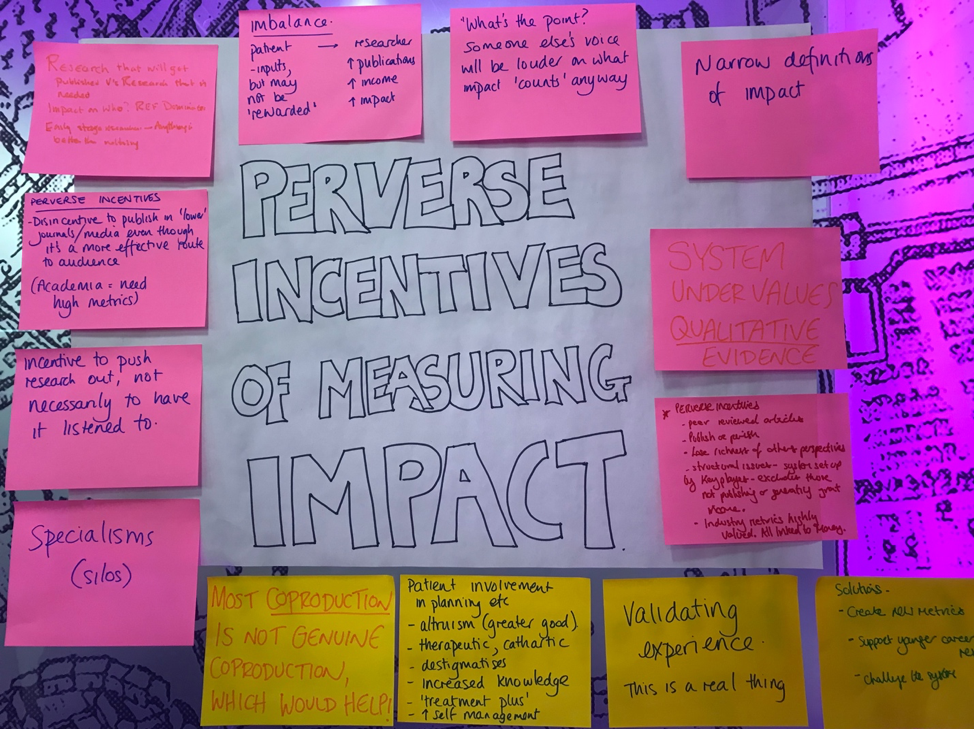 Research that will get
publisher vs Research that is
needed
Impact on who? REF Dominates
Early stage
better than nothing
imbalance.
patient → researcher
inputs, ↑ publications
but may ↑ income
not be ↑ impact
'rewarded'
"What's the point?
Someone else's voice
will be louder on what
impact 'counts' anyway
Narrow definitions
of impact
PERVERSE INCENTIVES
- Disincentive to publish in 'lower'
journals/media even though
it's a more effective route
to audience
(Academia = need
high metrics)
PERVERSE
INCENTIVES
OF MEASURING
IMPACT.
SYSTEM
UNDER VALUES
QUALITATIVE
EVIDENCE
Incentive to push
research out, not
necessarily to have
it listened to.
* Perverse incentives
- peer reviewed articles
- Publish or perish
- Lose richness of others perspectives
- structural issues - system set up
by Key players - excludes those
not publishing or generating grant
income.
- Industry metrics highly
valued. All linked to money.
Specialisms
(silos)
MOST COPRODUCTION
IS NOT GENUINE
COPRODUCTION,
WHICH WOULD HELP!
Patient involvement
in planning etc
- altruism (greater good)
- therapeutic, cathartic
- destigmatises
- increased knowledge
- 'treatment plus'
- ↑ self management
Validating
experience.
This is a real thing
Solutions.
- Create new metrics
- Support younger career
- Challenge the system